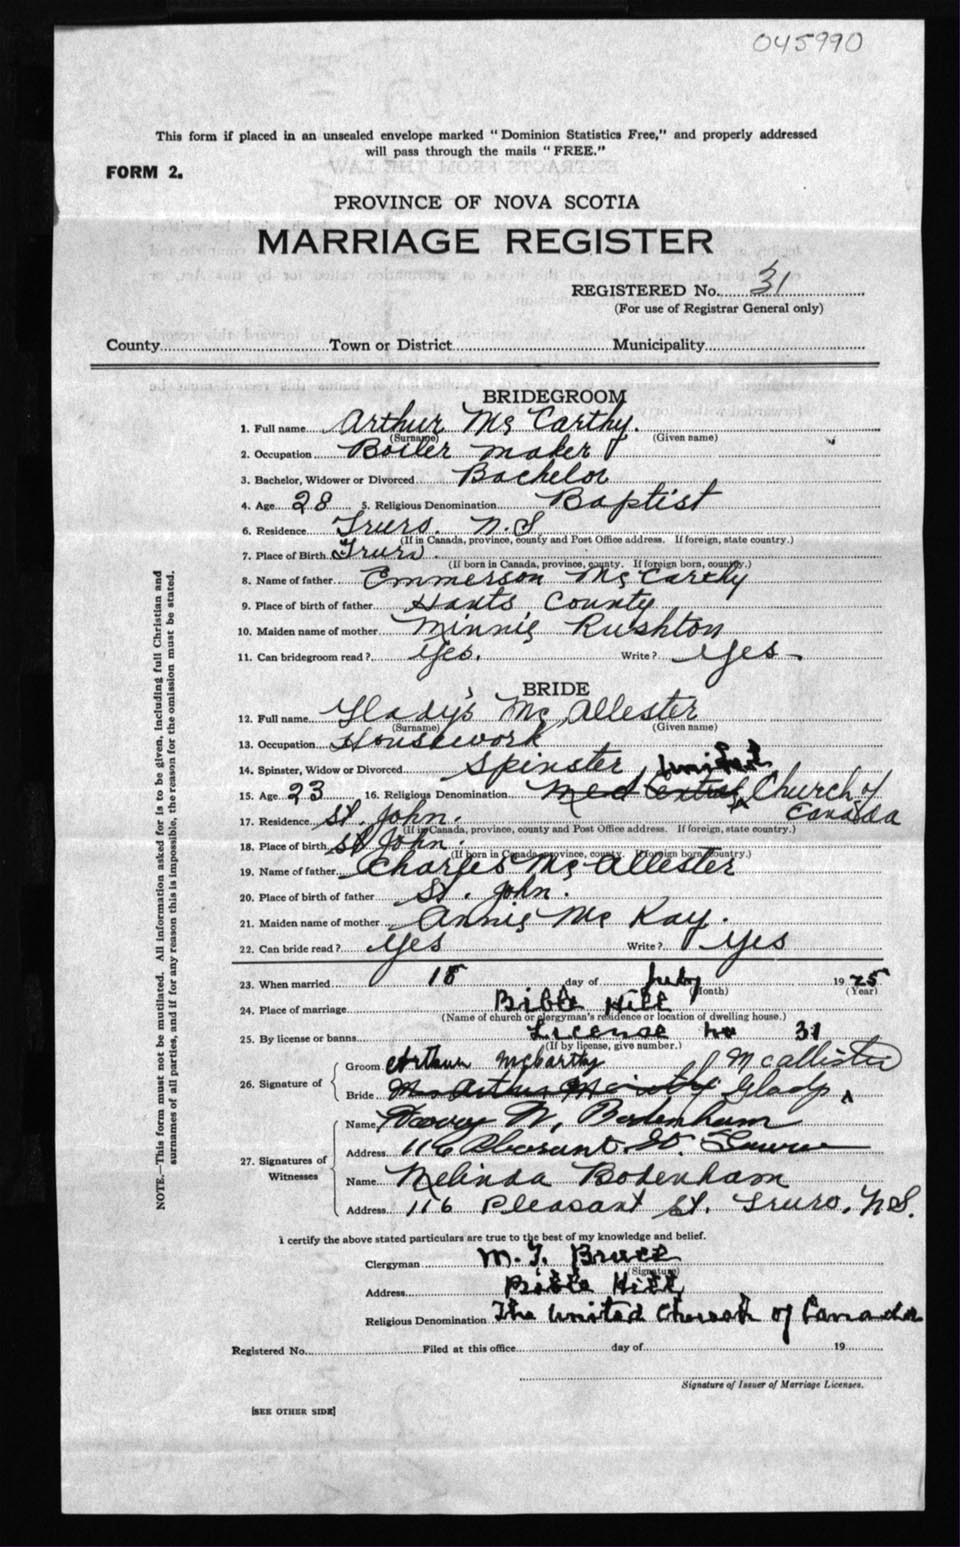 045990
This form if placed in an unsealed envelope marked "Dominion Statistics Free," and properly addressed
will pass through the mails "FREE."
FORM 2.
PROVINCE OF NOVA SCOTIA
MARRIAGE REGISTER
REGISTERED No. 31
(For use of Registrar General only)
County Town or District Municipality
BRIDEGROOM
1. Full name Arthur McCarthy.
(Surname) (Given name)
2. Occupation Boiler maker
3. Bachelor, Widower or Divorced Bachelor
4. Age 28 5. Religious Denomination Baptist
6. Residence Truro. N.S
(If in Canada, province, county and Post Office address. If foreign, state country.)
7. Place of Birth Truro.
(If born in Canada, province, county. If foreign born, country.)
8. Name of father Emmerson McCarthy
9. Place of birth of father Hants County
10. Maiden name of mother Minnie Rushton
11. Can bridegroom read? Yes. Write? Yes
BRIDE
12. Full name Gladys McAllester
(Surname) (Given name)
13. Occupation Housework
14. Spinster, Widow or Divorced Spinster
15. Age 23 16. Religious Denomination Med Central United Church of
Canada
17. Residence St. John.
(If in Canada, province, county and Post Office address. If foreign, state country.)
18. Place of birth St John.
(If born in Canada, province, county. If foreign born, country.)
19. Name of father Charles McAllester
20. Place of birth of father St. John.
21. Maiden name of mother Annie McKay.
22. Can bride read? Yes Write? Yes
23. When married 18 day of July 1925
(Month) (Year)
24. Place of marriage Bible Hill
(Name of church or clergyman's residence or location of dwelling house.)
25. By license or banns License no 31
(If by license, give number.)
26. Signature of
Groom Arthur McCarthy
Bride Mrs Arthur McCarthy Gladys McAllister
27. Signatures of Witnesses
Name Harry W. Bodenham
Address 116 Pleasant St. Truro
Name Melinda Bodenham
Address 116 Pleasant St. Truro, N.S.
I certify the above stated particulars are true to the best of my knowledge and belief.
Clergyman M. J. Bruce
(Signature)
Address Bible Hill
Religious Denomination The United Church of Canada
Registered No. Filed at this office day of 19
Signature of Issuer of Marriage Licenses.
[SEE OTHER SIDE]
NOTE.—This form must not be mutilated. All information asked for is to be given, including full Christian and
surnames of all parties, and if for any reason this is impossible, the reason for the omission must be stated.